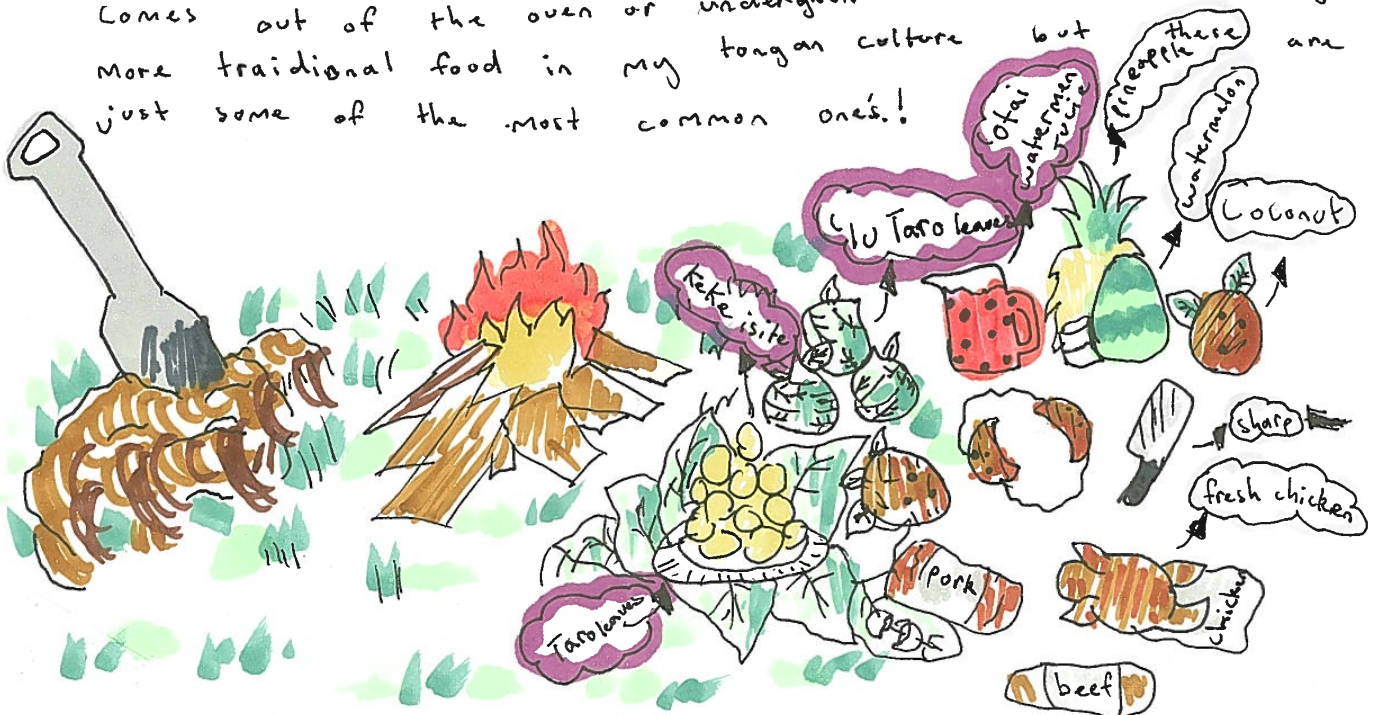 comes out of the oven or
more traidional food in my tongan culture but these are
just some of the most common one's.!
pineapple
Otai
watermen
Jucie
watermelon
Coconut
lu Taro leaves
keke isite
sharp
fresh chicken
pork
chicken
Taro leaves
beef